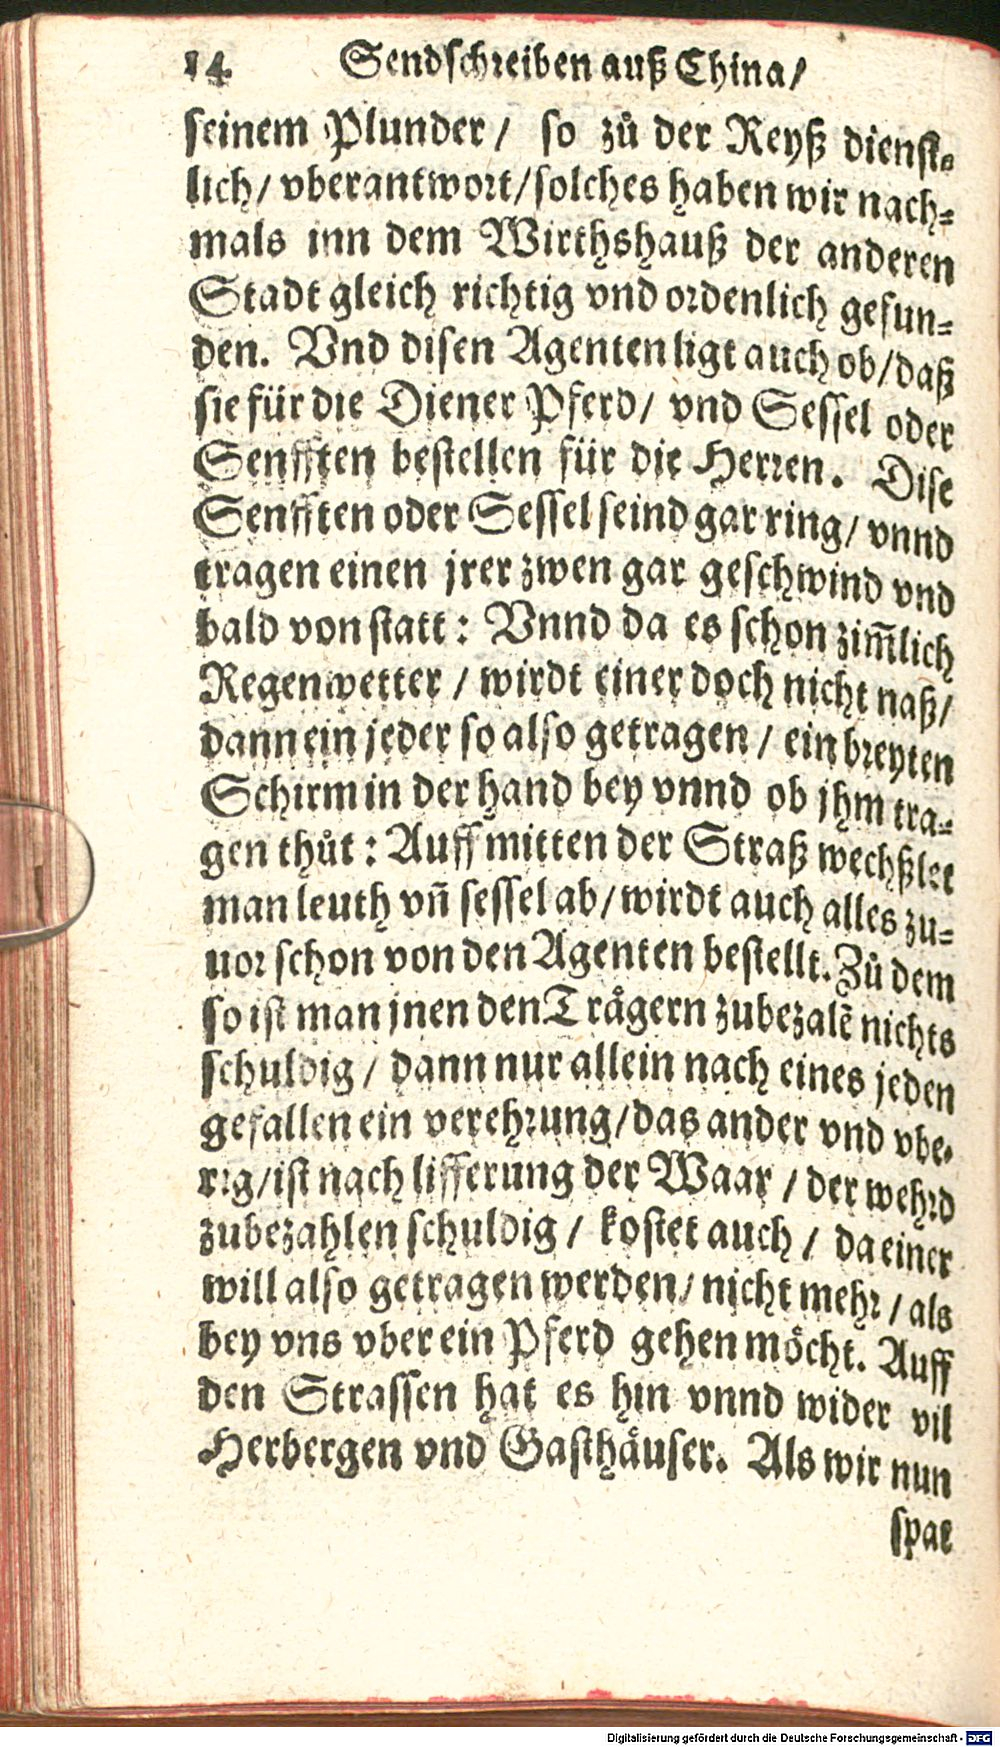 14 Sendschreiben auß China/
seinem Plunder/ so zů der Reyß dienst-
lich/ vberantwort/ solches haben wir nach-
mals inn dem Wirthshauß der anderen
Stadt gleich richtig vnd ordenlich gefun-
den. Vnd disen Agenten ligt auch ob/ daß
sie für die Diener Pferd/ vnd Sessel oder
Senfften bestellen für die Herren. Dise
Senfften oder Sessel seind gar ring/ vnnd
tragen einen jrer zwen gar geschwind vnd
bald von statt: Vnnd da es schon zim̃lich
Regenwetter / wirdt einer doch nicht naß/
dann ein jeder so also getragen / ein breyten
Schirm in der hand bey vnnd ob jhm tra-
gen thůt: Auff mitten der Straß wechßlet
man leuth vñ sessel ab/ wirdt auch alles zu-
uor schon von den Agenten bestellt. Zů dem
so ist man jnen den Trägern zubezalẽ nichts
schuldig / dann nur allein nach eines jeden
gefallen ein verehrung/ das ander vnd vbe-
rig/ ist nach lifferung der Waar / der wehrd
zubezahlen schuldig / kostet auch / da einer
will also getragen werden/ nicht mehr / als
bey vns vber ein Pferd gehen möcht. Auff
den Strassen hat es hin vnnd wider vil
Herbergen vnd Gasthäuser. Als wir nun
spat
Digitalisierung gefördert durch die Deutsche Forschungsgemeinschaft - DFG